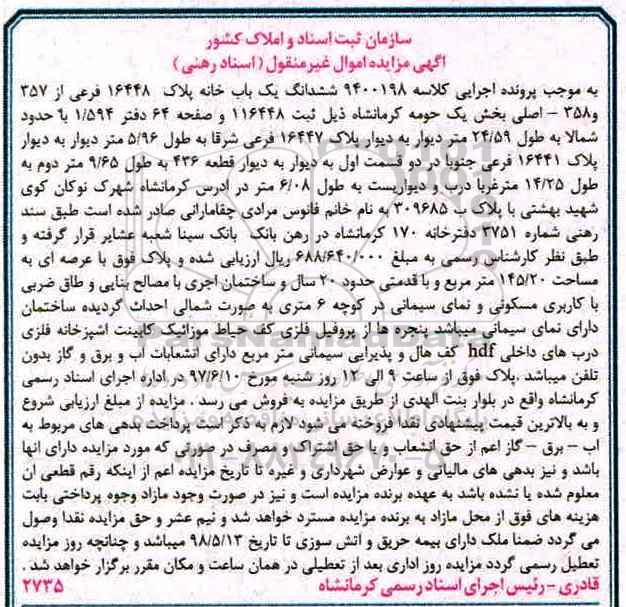 سازمان ثبت اسناد و املاک کشور
آگهی مزایده اموال غیرمنقول (اسناد رهنی)
به موجب پرونده اجرایی کلاسه ۹۴۰۰۱۹۸ ششدانگ یک باب خانه پلاک ۱۶۴۴۸ فرعی از ۳۵۷
و۳۵۸ – اصلی بخش یک حومه کرمانشاه ذیل ثبت ۱۱۶۴۴۸ و صفحه ۶۴ دفتر ۱/۵۹۴ با حدود
شمالا به طول ۲۴/۵۹ متر دیوار به دیوار پلاک ۱۶۴۴۷ فرعی شرقا به طول ۵/۹۶ متر دیوار به دیوار
پلاک ۱۶۴۴۱ فرعی جنوبا در دو قسمت اول به دیوار به دیوار قطعه ۴۳۶ به طول ۹/۶۵ متر دوم به
طول ۱۴/۲۵ مترغربا درب و دیواریست به طول ۶/۰۸ متر در ادرس کرمانشاه شهرک نوکان کوی
شهید بهشتی با پلاک ب ۳۰۹۶۸۵ به نام خانم فانوس مرادی چقامارانی صادر شده است طبق سند
رهنی شماره ۳۷۵۱ دفترخانه ۱۷۰ کرمانشاه در رهن بانک بانک سینا شعبه عشایر قرار گرفته و
طبق نظر کارشناس رسمی به مبلغ ۶۸۸/۶۴۰/۰۰۰ ریال ارزیابی شده و پلاک فوق با عرصه ای به
مساحت ۱۴۵/۲۰ متر مربع و با قدمتی حدود ۲۰ سال و ساختمان اجری با مصالح بنایی و طاق ضربی
با کاربری مسکونی و نمای سیمانی در کوچه ۶ متری به صورت شمالی احداث گردیده ساختمان
دارای نمای سیمانی میباشد پنجره ها از پروفیل فلزی کف حیاط موزائیک کابینت اشپزخانه فلزی
درب های داخلی hdf کف هال و پذیرایی سیمانی متر مربع دارای انشعابات اب و برق و گاز بدون
تلفن میباشد .پلاک فوق از ساعت ۹ الی ۱۲ روز شنبه مورخ ۹۷/۶/۱۰ در اداره اجرای اسناد رسمی
کرمانشاه واقع در بلوار بنت الهدی از طریق مزایده به فروش می رسد . مزایده از مبلغ ارزیابی شروع
و به بالاترین قیمت پیشنهادی نقدا فروخته می شود لازم به ذکر است پرداخت بدهی های مربوط به
اب – برق – گاز اعم از حق انشعاب و یا حق اشتراک و مصرف در صورتی که مورد مزایده دارای انها
باشد و نیز بدهی های مالیاتی و عوارض شهرداری و غیره تا تاریخ مزایده اعم از اینکه رقم قطعی ان
معلوم شده یا نشده باشد به عهده برنده مزایده است و نیز در صورت وجود مازاد وجوه پرداختی بابت
هزینه های فوق از محل مازاد به برنده مزایده مسترد خواهد شد و نیم عشر و حق مزایده نقدا وصول
می گردد ضمنا ملک دارای بیمه حریق و اتش سوزی تا تاریخ ۹۸/۵/۱۳ میباشد و چنانچه روز مزایده
تعطیل رسمی گردد مزایده روز اداری بعد از تعطیلی در همان ساعت و مکان مقرر برگزار خواهد شد .
قادری – رئیس اجرای اسناد رسمی کرمانشاه ۲۷۳۵